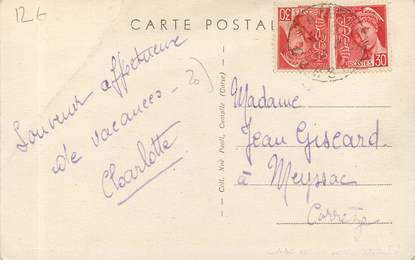 12€
CARTE POSTAL
30
POSTES 30
Souvenir affectueux
de vacances -
20)
Charlotte
Coll. Noë Paoli, Canselle (Corse)
Madame
Jean Giscard
à Meyssac
Corrèze